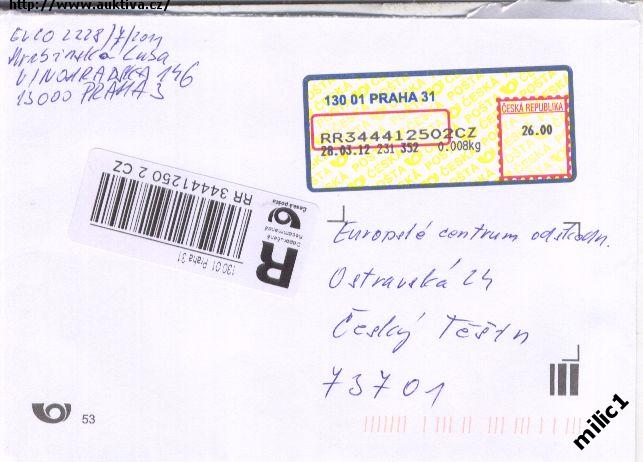 http://www.auktiva.cz/
EVCO 2228/7/2011
Hrebinska Luba
VINOHRADSKA 146
13000 PRAHA 3
130 01 PRAHA 31
ČESKÁ REPUBLIKA
RR344412502CZ
26.00
28.03.12 231 352 0.008kg
RR 34441250 2 CZ
Česká pošta
R
Doporučeně
Recommandé
130 01 Praha 31
Evropské centrum odškodn.
Ostravská 24
Český Těšín
73701
53
milic1